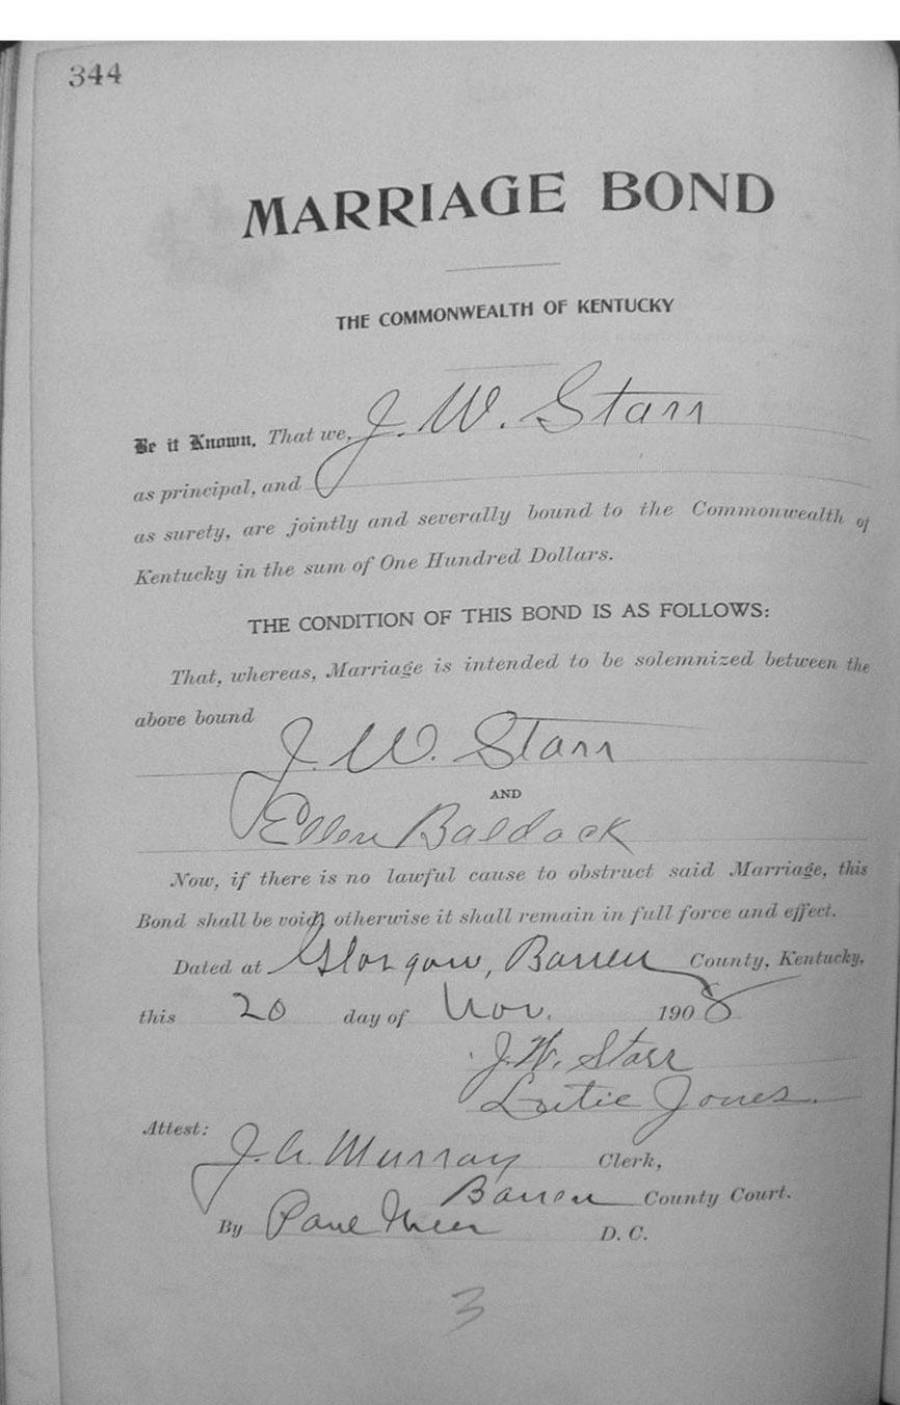 344
MARRIAGE BOND
THE COMMONWEALTH OF KENTUCKY
Be it Known, That we, J. W. Starr
as principal, and
as surety, are jointly and severally bound to the Commonwealth of
Kentucky in the sum of One Hundred Dollars.
THE CONDITION OF THIS BOND IS AS FOLLOWS:
That, whereas, Marriage is intended to be solemnized between the
above bound J. W. Starr
AND
Ellen Baldock
Now, if there is no lawful cause to obstruct said Marriage, this
Bond shall be void, otherwise it shall remain in full force and effect.
Dated at Glasgow, Barren County, Kentucky,
this 20 day of Nov. 1908
J. W. Starr
Jones.
Attest:
J. A. Murray Clerk,
Barren County Court.
By D. C.
3